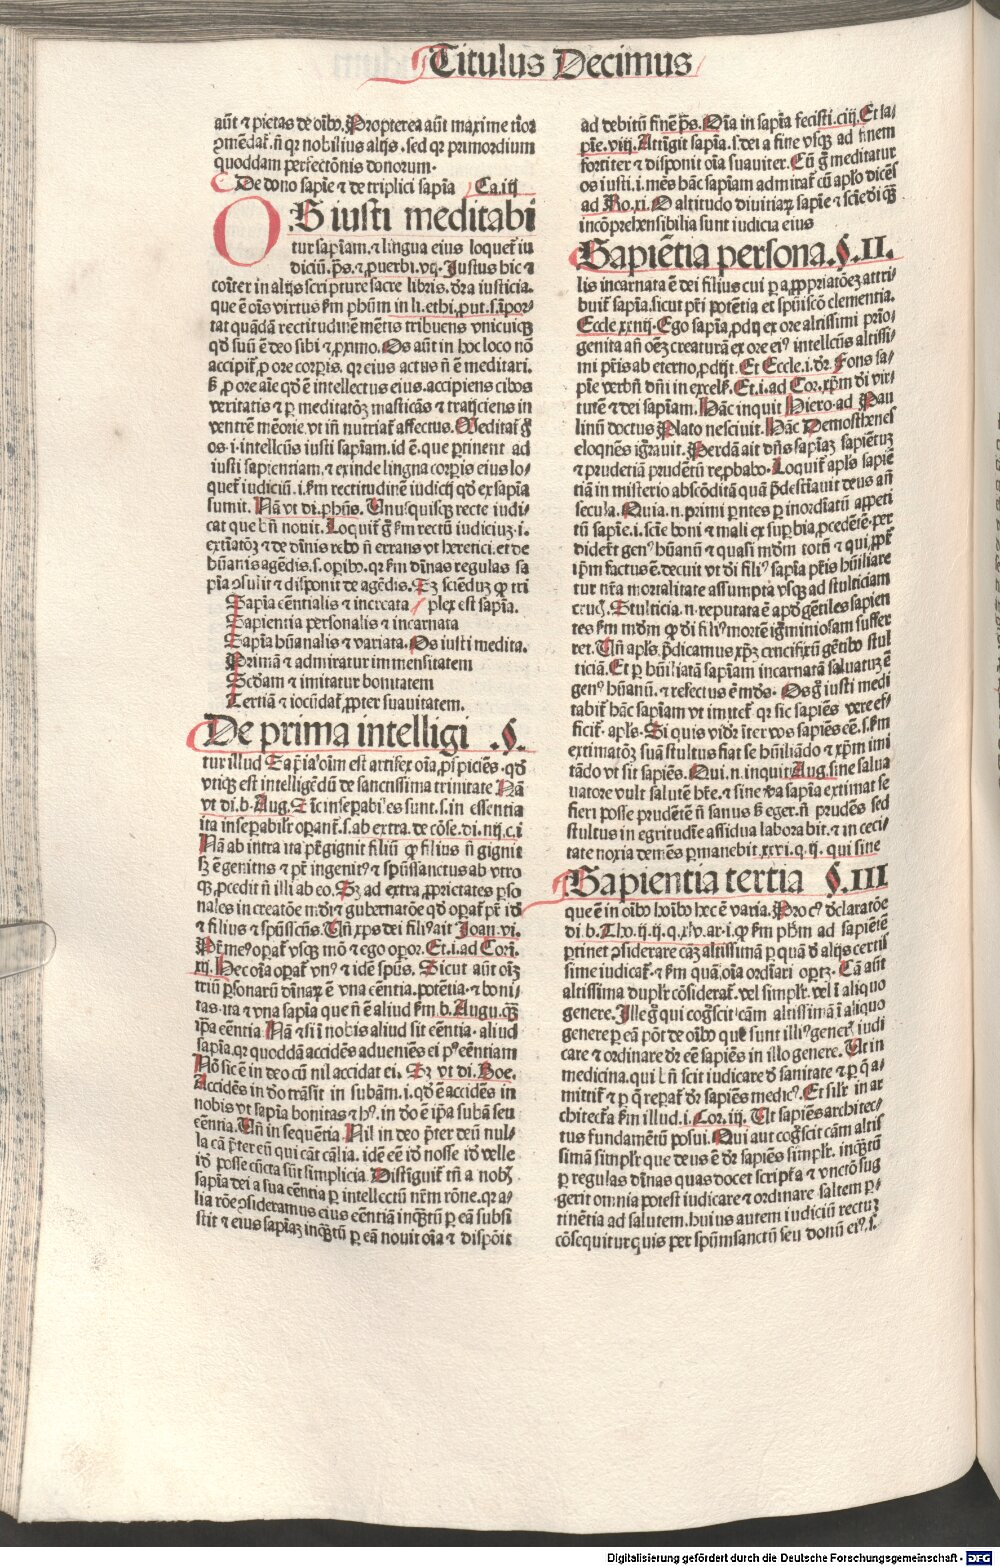 Titulus Decimus
aūt ⁊ pietas de oĩbo. Propterea aūt maxime tior
ꝯmēdat᷑. ñ qr nobilius alijs. sed qr primordium
quoddam perfectōnis donorum.
De dono sapiẽ ⁊ de triplici sapia Ca. iij
OS iusti meditabi
tur sapiam. ⁊ lingua eius loquet᷑ iu
diciū. ps. ⁊ ꝓuerbi. Justus hic ⁊
coiter in alijs scripture sacre libris. dr̃a iusticia.
que ē oĩs virtus km phūm in li. ethi. put. s. ipor-
tat quādā rectitudinē mētis tribuens vnicuiqꝫ
qď suū ē deo sibi ⁊ ꝓximo. Os aūt in hoc loco nō
accipit᷑ ꝓ ore corꝑis. qr eius actus ñ ē meditari.
ß ꝓ ore aĩe qď ē intellectus eius. accipiens cibos
veritatis ⁊ ꝑ meditatōꝫ masticās ⁊ traijciens in
ventrē mēorie. vt iñ nutriat᷑ affectus. Meditat᷑ g̊
os. i. intellctūs iusti sapiam. id ē. que ꝑtinent ad
iusti sapientiam. ⁊ exinde lingua corꝑis eius lo-
quet᷑ iudiciū. i. km rectitudinē iudicij qď ex sapia
sumit. Nā vt di. phūs. Unusquisqꝫ recte iudi-
cat que bñ nouit. Loquit᷑ g̊ km rectū iudiciuꝫ. i.
extiatōꝫ ⁊ de diñis rebo ñ errans vt heretici. et de
hūanis agēdis. s. oꝑibo. qr km diñas regulas sa
pia ꝯsulit ⁊ disponit de agēdis. Sꝫ sciēduꝫ ꝙ tri
Sapia cēntialis ⁊ increata plex est sapia.
Sapientia personalis ⁊ incarnata
Sapia hūanalis ⁊ variata. Os iusti medita.
Primā ⁊ admiratur immensitatem
Scďam ⁊ imitatur bonitatem
Tertiā ⁊ iocūdat᷑ ꝓpter suauitatem.
De prima intelligi .§.
tur illud Sapiẽ oim est artifex oĩa ꝓspiciēs. qď
vtiqꝫ est intelligēdū de sanctissima trinitate. Nā
vt di. b. Aug. Sic inseparabiles sunt. s. in essentia
ita inseparabilr̃ oꝑant᷑. s. ab extra. de cōse. di. iiij. c. i
Nā ab intra ita pr̃ gignit filiū ꝙ filius ñ gignit
sꝫ ē genitus ⁊ pr̃ ingenitꝰ ⁊ spūssanctus ab vtro
qꝫ ꝓcedit ñ illi ab eo. Sꝫ ad extra ꝓprietates ꝑso
nales in creatōe mūdi ⁊ gubernatōe qď oꝑat᷑ pr̃ id
⁊ filius ⁊ spūsscūs. Uñ xp̃s dei filiꝰ ait Joan. vi.
Pr̃ meꝰ oꝑat᷑ vsqꝫ mō ⁊ ego oꝑor. Et. i. ad Cori.
xij. Hec oĩa oꝑat᷑ vnꝰ ⁊ idē spūs. Sicut aūt oĩꝫ
triū ꝑsonarū diñaꝝ ē vna cēntia. potētia ⁊ boni-
tas. ita ⁊ vna sapia que ñ ē aliud km b. Augu. qꝫ
ip̃a cēntia. Nā ⁊ si i nobis aliud sit cēntia. aliud
sapia. qr quoddā accidēs adueniēs ei pꝰ cēntiam
Nō sic ē in deo cū nil accidat ei. Sꝫ vt di. Boe.
Accidēs in do trāsit in subāti. i. qď ē accidēs in
nobis vt sapia bonitas ⁊ hꝰ. in do ē ip̃a subā seu
cēntia. Uñ in sequētia. Nil in deo pr̃ter deū nul-
la cā pr̃ter eū qui cāt cālia. idē eē id nosse id velle
id posse cūcta sūt simplicia. Distiguit᷑ tñ a nobꝫ
sapia dei a sua cēntia ꝑ intellectū nr̃m rōne. qr a-
lia rōe ꝯsideramus eius cēntiā inqꝫtū ꝑ eā subsi
stit ⁊ eius sapiaꝫ inqꝫtū ꝑ eā nouit oĩa ⁊ dispōit
ad debitū finē ps. Oĩa in sapia fecisti. ciij. Et sa-
piẽ. viij. Attigit sapia. s. dei a fine vsqꝫ ad finem
fortiter ⁊ disponit oĩa suauiter. Cū g̊ meditatur
os iusti. i. mēs hāc sapiam admirat᷑ cū aplo dicēs
ad Ro. xi. O altitudo diuitiaꝝ sapiẽ ⁊ sciẽ di qꝫ
incōprehensibilia sunt iudicia eius
Sapiētia persona. §. II.
lis incarnata ē dei filius cui ꝑ aꝓpriatōeꝫ attri-
buit᷑ sapia. sicut pr̃i potētia et spūisco clementia.
Eccle. xxiiij. Ego sapia ꝓdij ex ore altissimi prio-
genita añ oēꝫ creaturā ex ore eiꝰ intellctūs altissi-
mi pr̃is ab eterno ꝓdijt. Et Eccle. i. dr̃. Fons sa-
piẽ verbū dñi in excels. Et. i. ad Cor. xp̃m di vir-
tutē ⁊ dei sapiam. Hāc inquit Hiero. ad Pau
linū doctus Plato nesciuit. Hāc Demosthenes
eloquēs igrauit. Perdā ait dñs sapiaꝫ sapiētuꝫ
⁊ prudētiā prudētū reꝓbabo. Loquit᷑ apls sapiẽ
tiā in misterio abscōditā quā pdestiauit deus añ
secula. Quia. n. primi ꝑntes ꝑ inordiatū appeti
tū sapiẽ. i. sciẽ boni ⁊ mali ex suꝑbia ꝓcedētē. per
didert genꝰ hūanū ⁊ quasi mdm totū ⁊ qui ꝓpt᷑
ip̃m factus ē. decuit vt di filiꝰ sapia pr̃is hūiliare
tur nr̃a mortalitate assumpta vsqꝫ ad stulticiam
crucis. Stulticia. n. reputata ē apď gētiles sapien
tes km mdm ꝙ di filiꝰ mortē igmiosam suffer
ret. Uñ apls. Pdicamus xp̃ꝫ crucifixū gētibo stul
ticiā. Et ꝑ hūiliatā sapiam incarnatā saluatuꝫ ē
genꝰ hūanū. ⁊ refectus ē mds. Os g̊ iusti medi
tabit᷑ hāc sapiam vt imitet᷑ qr sic sapiēs vere ef-
ficit᷑. apls. Si quis vidr̃ iter vos sapiēs eē. s. km
extimatōꝫ suā stultus fiat se hūiliādo ⁊ xp̃m imi
tādo vt sit sapiēs. Qui. n. inquit Aug. sine salua
uatore vult salutē hr̃e. ⁊ sine ꝟa sapia extimat se
fieri posse prudētē ñ sanus ß eger. ñ prudēs sed
stultus in egritudie assidua laborabit. ⁊ in ceci-
tate noxia demēs ꝑmanebit. xxvi. q. ij. qui sine
Sapientia tertia §. III
que ē in oĩbo hoĩbo hec ē varia. Pro cꝰ dclaratōe
di b. Tho. ij. ij. q. xlv. ar. i. ꝙ km phm ad sapiētē
ꝑtinet ꝯsiderare caꝫ altissimā ꝑ quā d alijs certis
sime iudicat᷑. ⁊ km quā oĩa ordiari optꝫ. Cā aūt
altissima duplr̃ cōsiderat᷑. vel simplr̃. vel i aliquo
genere. Ille g̊ qui cog̊scit cām altissimā i aliquo
genere ꝑ eā pōt de oĩbo que sunt illiꝰ generꝭ iudi
care ⁊ ordinare dr̃ eē sapiēs in illo genere. Ut in
medicina. qui bñ scit iudicare d sanitate ⁊ ꝑ q̃ a-
mittit᷑ ⁊ ꝑ q̃ reꝑat᷑ dr̃ sapiēs medicꝰ. Et silr̃ in ar
chitect᷑a km illud. i. Cor. iij. Ut sapiēs architec-
tus fundamētū posui. Qui aut cog̊scit cām altis
simā simplr̃ que deus ē dr̃ sapiēs simplr̃. inqꝫtū
ꝑ regulas diñas quas docet scriptꝭa ⁊ vnctō sug
gerit omnia potest iudicare ⁊ ordinare saltem ꝑ-
tinētia ad salutem. huius autem iudiciū rectuꝫ
cōsequitur quis per spūmsanctū seu donū eiꝰ. s.
Digitalisierung gefördert durch die Deutsche Forschungsgemeinschaft - DFG